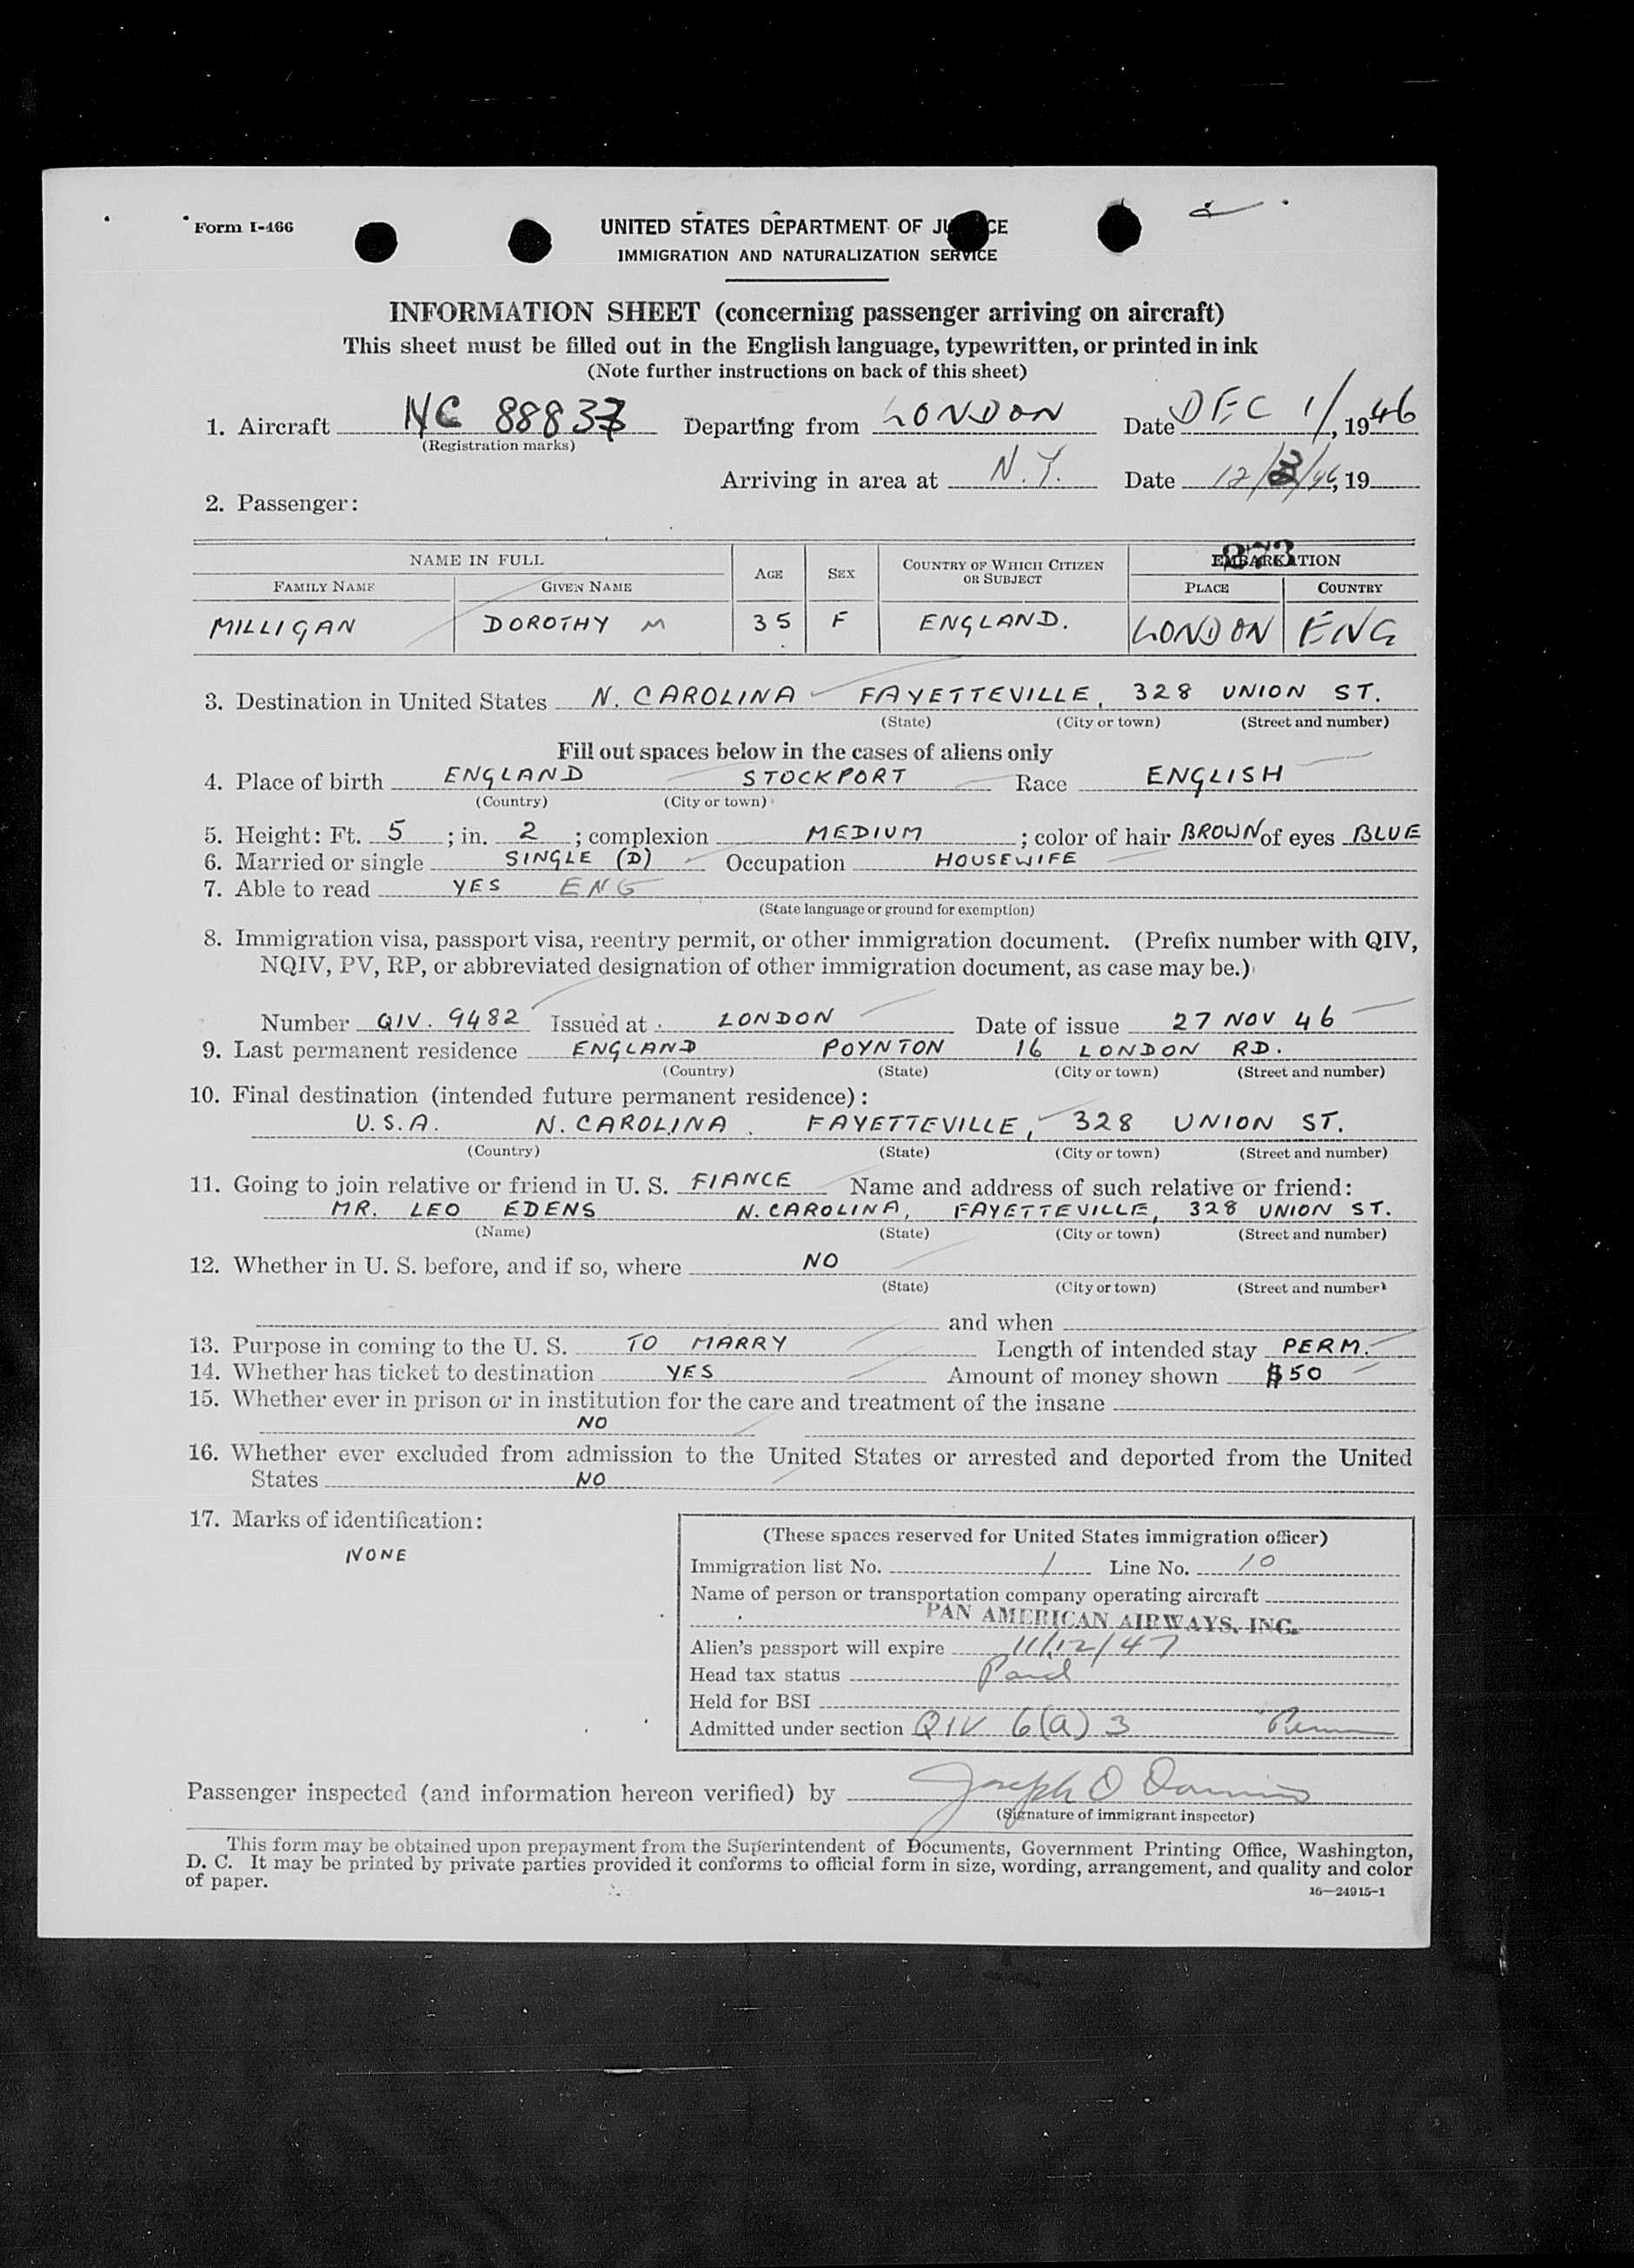 Form I-466
UNITED STATES DEPARTMENT OF JU CE
IMMIGRATION AND NATURALIZATION SERVICE
INFORMATION SHEET (concerning passenger arriving on aircraft)
This sheet must be filled out in the English language, typewritten, or printed in ink
(Note further instructions on back of this sheet)
1. Aircraft NC 8883 Departing from LONDON Date DEC 1/, 1946
(Registration marks)
Arriving in area at N.Y. Date 12/3/46, 19
2. Passenger:
373
NAME IN FULL AGE SEX COUNTRY OF WHICH CITIZEN OR SUBJECT EMBARKATION
FAMILY NAME GIVEN NAME PLACE COUNTRY
MILLIGAN DOROTHY M 35 F ENGLAND. LONDON ENG
3. Destination in United States N. CAROLINA FAYETTEVILLE, 328 UNION ST.
(State) (City or town) (Street and number)
Fill out spaces below in the cases of aliens only
4. Place of birth ENGLAND STOCKPORT Race ENGLISH
(Country) (City or town)
5. Height: Ft. 5 ; in. 2 ; complexion MEDIUM ; color of hair BROWN of eyes BLUE
6. Married or single SINGLE (D) Occupation HOUSEWIFE
7. Able to read YES ENG
(State language or ground for exemption)
8. Immigration visa, passport visa, reentry permit, or other immigration document. (Prefix number with QIV,
NQIV, PV, RP, or abbreviated designation of other immigration document, as case may be.)
Number QIV. 9482 Issued at LONDON Date of issue 27 NOV 46
9. Last permanent residence ENGLAND POYNTON 16 LONDON RD.
(Country) (State) (City or town) (Street and number)
10. Final destination (intended future permanent residence):
U.S.A. N. CAROLINA. FAYETTEVILLE, 328 UNION ST.
(Country) (State) (City or town) (Street and number)
11. Going to join relative or friend in U. S. FIANCE Name and address of such relative or friend:
MR. LEO EDENS N. CAROLINA, FAYETTEVILLE, 328 UNION ST.
(Name) (State) (City or town) (Street and number)
12. Whether in U. S. before, and if so, where NO
(State) (City or town) (Street and number)
and when
13. Purpose in coming to the U. S. TO MARRY Length of intended stay PERM.
14. Whether has ticket to destination YES Amount of money shown $50
15. Whether ever in prison or in institution for the care and treatment of the insane
NO
16. Whether ever excluded from admission to the United States or arrested and deported from the United
States NO
17. Marks of identification:
NONE
(These spaces reserved for United States immigration officer)
Immigration list No. 1 Line No. 10
Name of person or transportation company operating aircraft
PAN AMERICAN AIRWAYS, INC.
Alien's passport will expire 11/12/47
Head tax status Paid
Held for BSI
Admitted under section QIV 6(a) 3 Perm
Passenger inspected (and information hereon verified) by Joseph O
(Signature of immigrant inspector)
This form may be obtained upon prepayment from the Superintendent of Documents, Government Printing Office, Washington,
D. C. It may be printed by private parties provided it conforms to official form in size, wording, arrangement, and quality and color
of paper.
16—24915-1